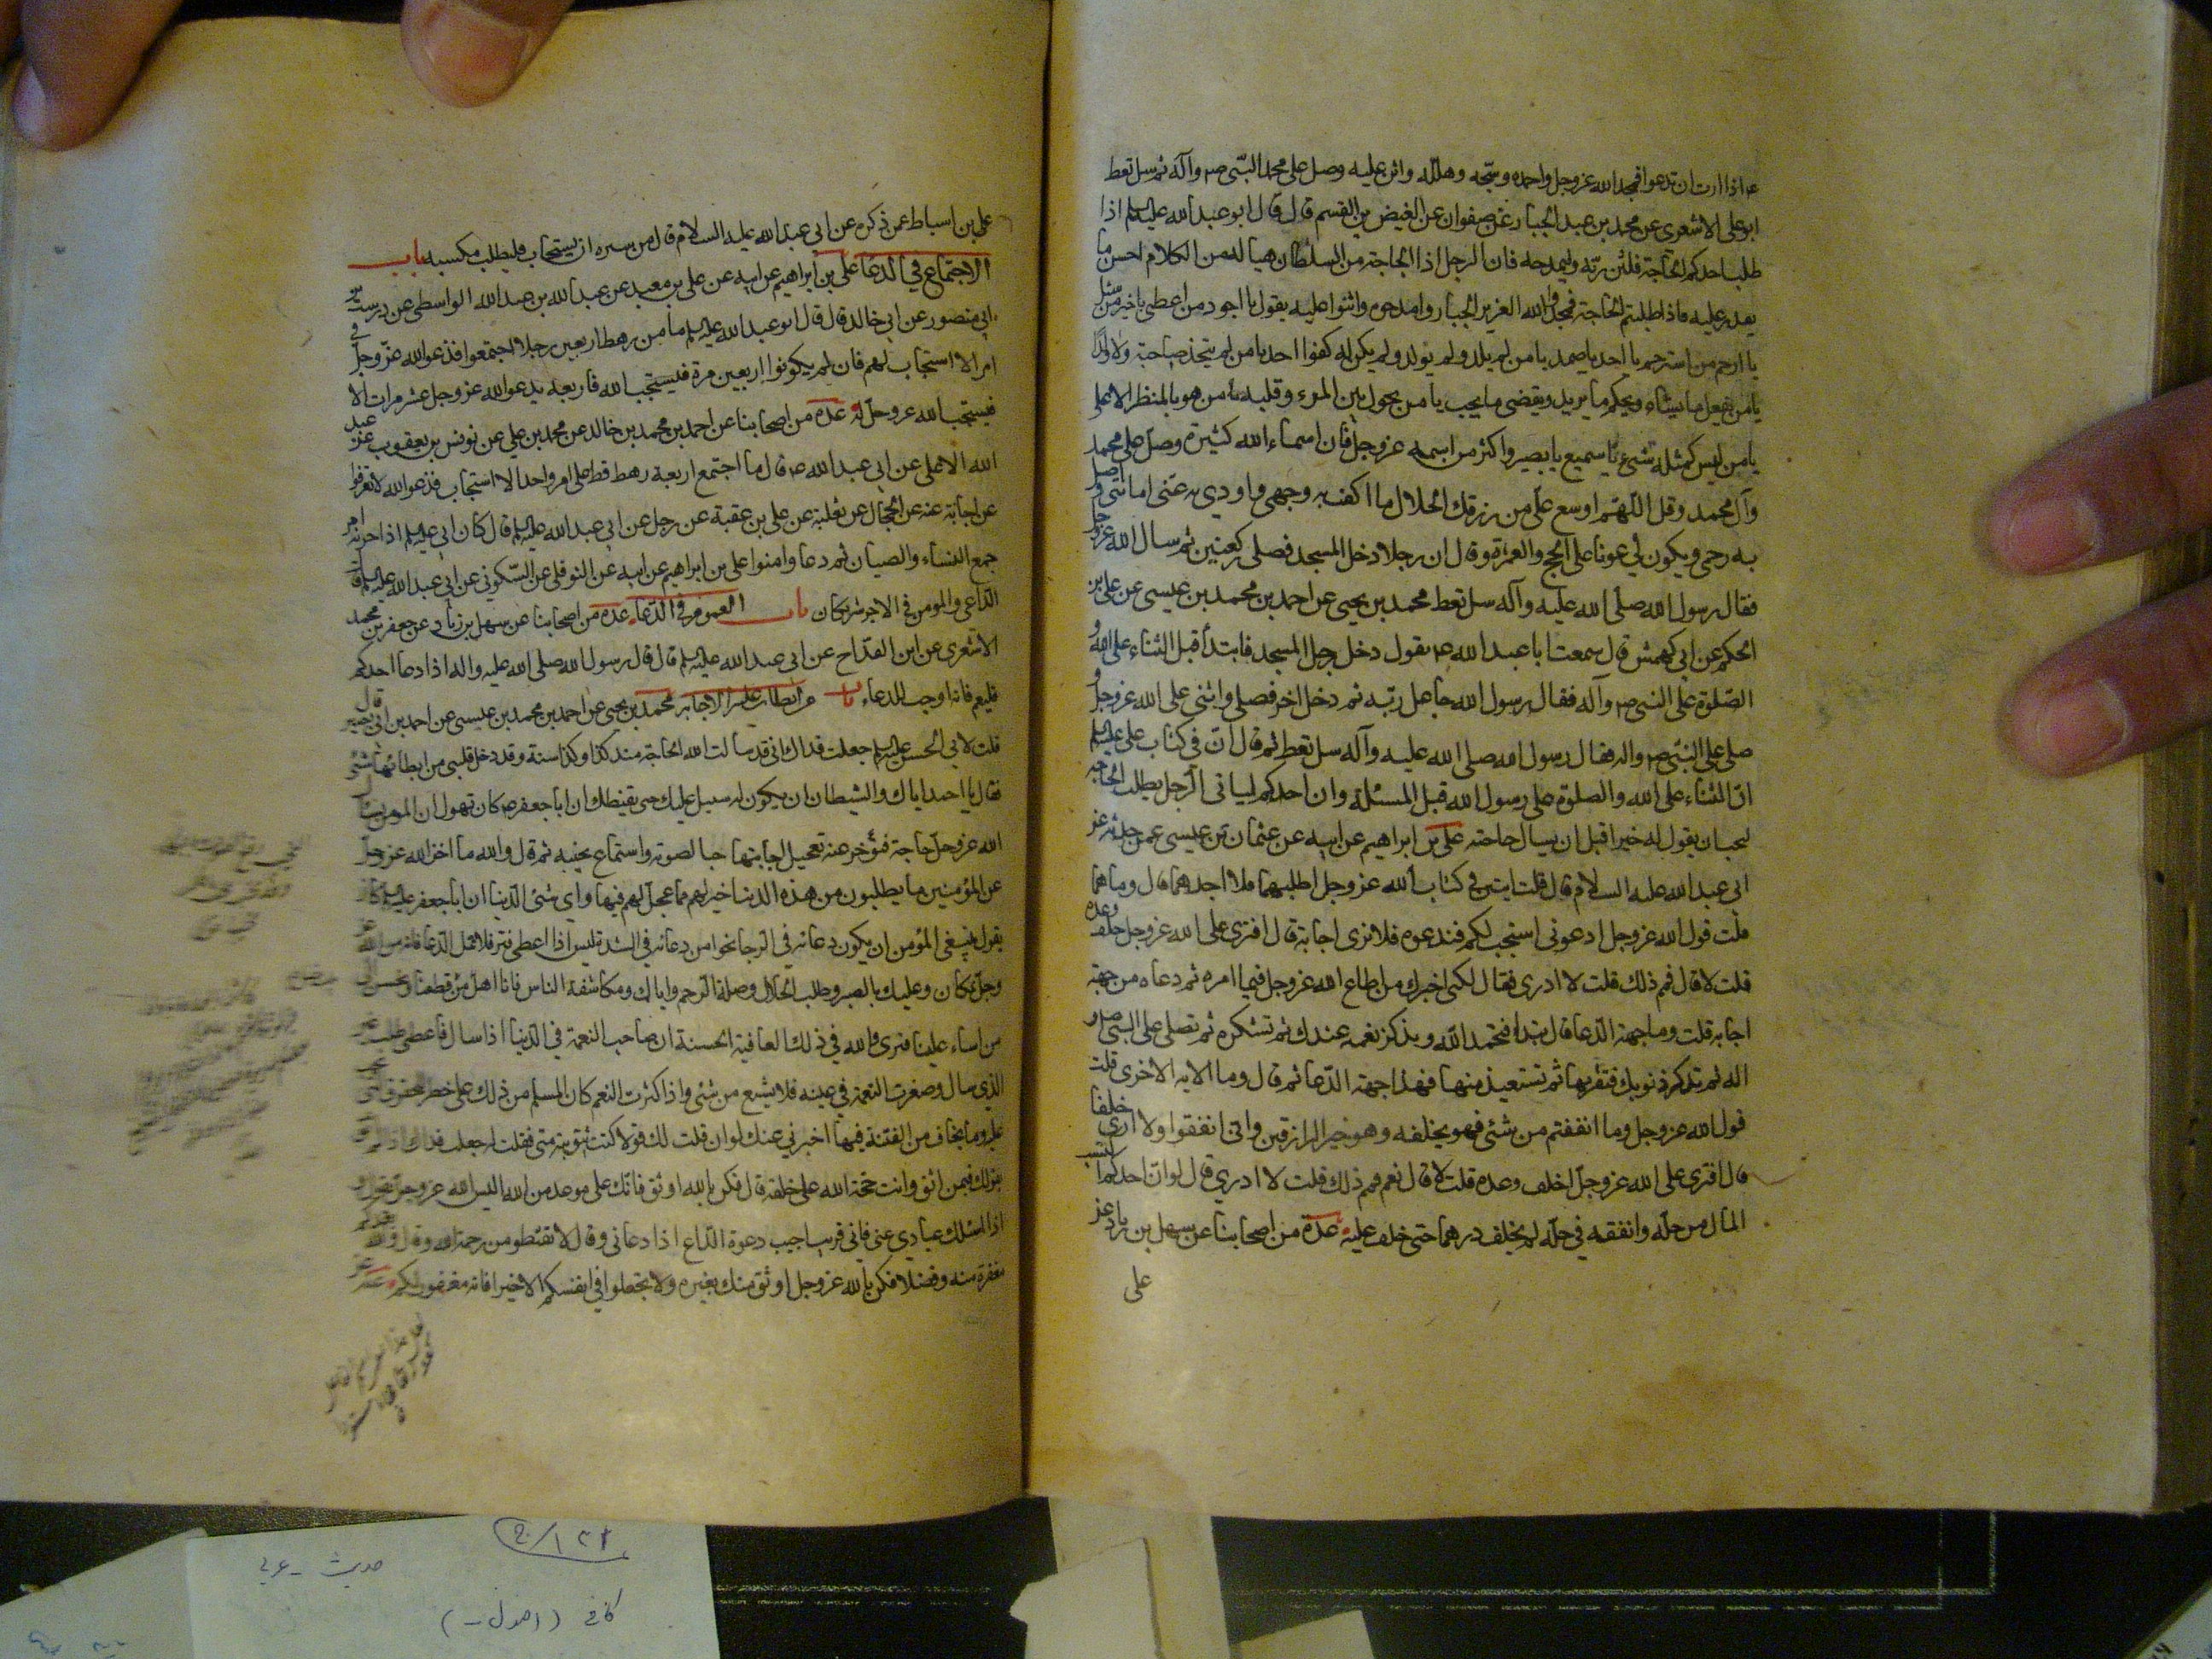 ع اذا اردت ان تدعوا فمجد الله عز وجل واحمده وسبحه وهلله واثن عليه وصل على محمد النبي ص وآله ثم سل تعط
ابو على الاشعرى عن محمد بن عبد الجبار عن صفوان عن الغيض بن القسم قال قال ابو عبد الله عليه السلم اذا
طلب احدكم الحاجة فليثن ربه وليمدحه فان الرجل اذا الحاجة من السلطان هيا له من الكلام احسن ما
يقدر عليه فاذا طلبتم الحاجة فمجدوا الله العزيز الجبار وامدحوه واثنوا عليه يقول يا اجود من اعطى يا خير من سئل
يا ارحم من استرحم يا احد يا صمد يا من لم يلد ولم يولد ولم يكن له كفوا احد يا من لم يتخذ صاحبة ولا ولدا
يا من يفعل ما يشاء ويحكم ما يريد ويقضى ما يحب يا من يحول بين المرء وقلبه يا من هو بالمنظر الاعلى
يا من ليس كمثله شىء يا سميع يا بصير واكثر من اسمه عز وجل فان اسماء الله كثيرة وصل على محمد
وآل محمد وقل اللهم اوسع على من رزقك الحلال ما اكف به وجهى واودى به عنى امانتى واصل
به رحمى ويكون لى عونا على الحج والعمرة وقال ان رجلا دخل المسجد فصلى ركعتين ثم سال الله عز وجل
فقال رسول الله صلى الله عليه وآله سل تعط محمد بن يحيى عن احمد بن محمد بن عيسى عن على بن
الحكم عن ابى كهمش قال سمعت ابا عبد الله ع يقول دخل رجل المسجد فابتدأ قبل الثناء على الله و
الصلوة على النبى ص وآله فقال رسول الله عاجل ربه ثم دخل اخر فصلى واثنى على الله عز وجل و
صلى على النبى ص واله فقال رسول الله صلى الله عليه وآله سل تعط ثم قال ان فى كتاب على عليه السلم
ان الثناء على الله والصلوة على رسول الله قبل المسئلة وان احدكم لياتى الرجل يطلب الحاجة
ليحب ان يقول له خيرا قبل ان يسال حاجته على بن ابراهيم عن ابيه عن عثمان بن عيسى عمن حدثه عن
ابى عبد الله عليه السلام قال قلت ايتين فى كتاب الله عز وجل اطلبهما فلا اجدهما قال وما هما
قلت قول الله عز وجل ادعونى استجب لكم فندعوه فلا نرى اجابة قال افترى على الله عز وجل خلف وعده
قلت لا قال فمم ذلك قلت لا ادرى فقال لكنى اخبرك من اطاع الله عز وجل فيما امره ثم دعاه من جهة
اجابه قلت وما جهة الدعا قال تبدا فتحمد الله وتذكر نعمه عندك ثم تشكره ثم تصلى على النبى صلى و
اله ثم تذكر ذنوبك فتقر بها ثم تستعيذ منها فهذا جهة الدعا ثم قال وما الايه الاخرى قلت
قول الله عز وجل وما انفقتم من شئ فهو يخلفه وهو خير الرازقين وانى انفقوا ولا ارى خلفا
قال افترى على الله عز وجل اخلف وعده قلت لا قال نعم فمم ذلك قلت لا ادرى قال لو ان احدكم اكتسب
المال من حله وانفقه فى حله لم يخلف درهما حتى خلف عليه عدة من اصحابنا عن سهل بن زياد عن
على
على بن اسباط عمن ذكره عن ابى عبد الله عليه السلام قال من سره ان يستجاب فليطلب مكسبه باب
الاجتماع فى الدعا على بن ابراهيم عن ابيه عن على بن معبد عن عبيد الله بن عبد الله الواسطى عن درست بن
ابى منصور عن ابى خالد قال قال ابو عبد الله عليه السلم ما من رهط اربعين رجلا اجتمعوا فدعوا الله عز وجل فى
امر الا استجاب لهم فان لم يكونوا اربعين مرة فيستجب الله فاربعة يدعوا الله عز وجل عشر مرات الا
فيستجب الله عز وجل له عدة من اصحابنا عن احمد بن محمد بن خالد عن محمد بن على عن يونس بن يعقوب عن عبد
الله الاعلى عن ابى عبد الله ع قال ما اجتمع اربعة رهط قط على امر واحد الا استجاب فدعوا الله لا تفرقوا
عن اجابة عنه عن الحجال عن ثعلبة عن على بن عقبة عن رجل عن ابى عبد الله عليه السلم قال كان ابى عليه السلم اذا حزنه امر
جمع النساء والصبيان ثم دعا وامنوا على بن ابراهيم عن ابيه عن النوفلى عن السكونى عن ابى عبد الله عليه السلم قال
الداعى والمومن فى الاجر شريكان باب العموم فى الدعاء عدة من اصحابنا عن سهل بن زياد عن جعفر بن محمد
الاشعرى عن ابن القداح عن ابى عبد الله عليه السلم قال قال رسول الله صلى الله عليه واله اذا دعا احدكم
فليعم فانه اوجب للدعاء باب من ابطات عليه الاجابه محمد بن يحيى عن احمد بن محمد بن عيسى عن احمد بن ابى نصر قال
قلت لابى الحسن عليه السلم جعلت فداك انى قد سالت الله الحاجة منذ كذا وكذا سنة وقد دخل قلبى من ابطائها شئ
فقال يا احمد اياك والشيطان ان يكون له سبيل عليك حتى يقنطك ان ابا جعفر ع كان يقول ان المومن يسال
الله عز وجل حاجة فيؤخر عنه تعجيل اجابتها حبا لصوته واستماع نحيبه ثم قال والله ما اخر الله عز وجل
عن المؤمنين ما يطلبون من هذه الدنيا خير لهم مما عجل لهم فيها واى شئ الدنيا ان ابا جعفر عليه السلم كان
يقول ينبغى المؤمن ان يكون دعائه فى الرجا نحوا من دعائه فى الشدة ليس اذا اعطى فتر فلا تمل الدعا فانه من الله عز
وجل بمكان وعليك بالصبر وطلب الحلال وصلة الرحم واياك ومكاشفة الناس فانا اهل من قطعنا ونحسن الى
من اساء علينا فنرى والله فى ذلك العافية الحسنة ان صاحب النعمة فى الدنيا اذا سال فاعطى طلب غير
الذى سال وصغرت النعمة فى عينه فلا يشبع من شئ واذا كثرت النعم كان المسلم من ذلك على خطر
عليه وما يخاف من الفتنة فيها اخبرنى عنك لو ان قلت لك قولا كنت تثق به منى فقلت له جعلت فداك
بقولك فبمن اثق وانت حجة الله على خلقه قال فكن بالله اوثق فانك على موعد من الله اليس الله عز وجل يقول و
اذا سئلك عبادى عنى فانى قريب اجيب دعوة الداع اذا دعانى وقال لا تقنطو من رحمة الله وقال والله يعدكم
مغفرة منه وفضلا فكن بالله عز وجل اوثق منك بغيره ولا تجعلوا فى انفسكم الا خيرا فانه مغفور لكم عنه عن
حديث - عربى
كافى (اصول -)